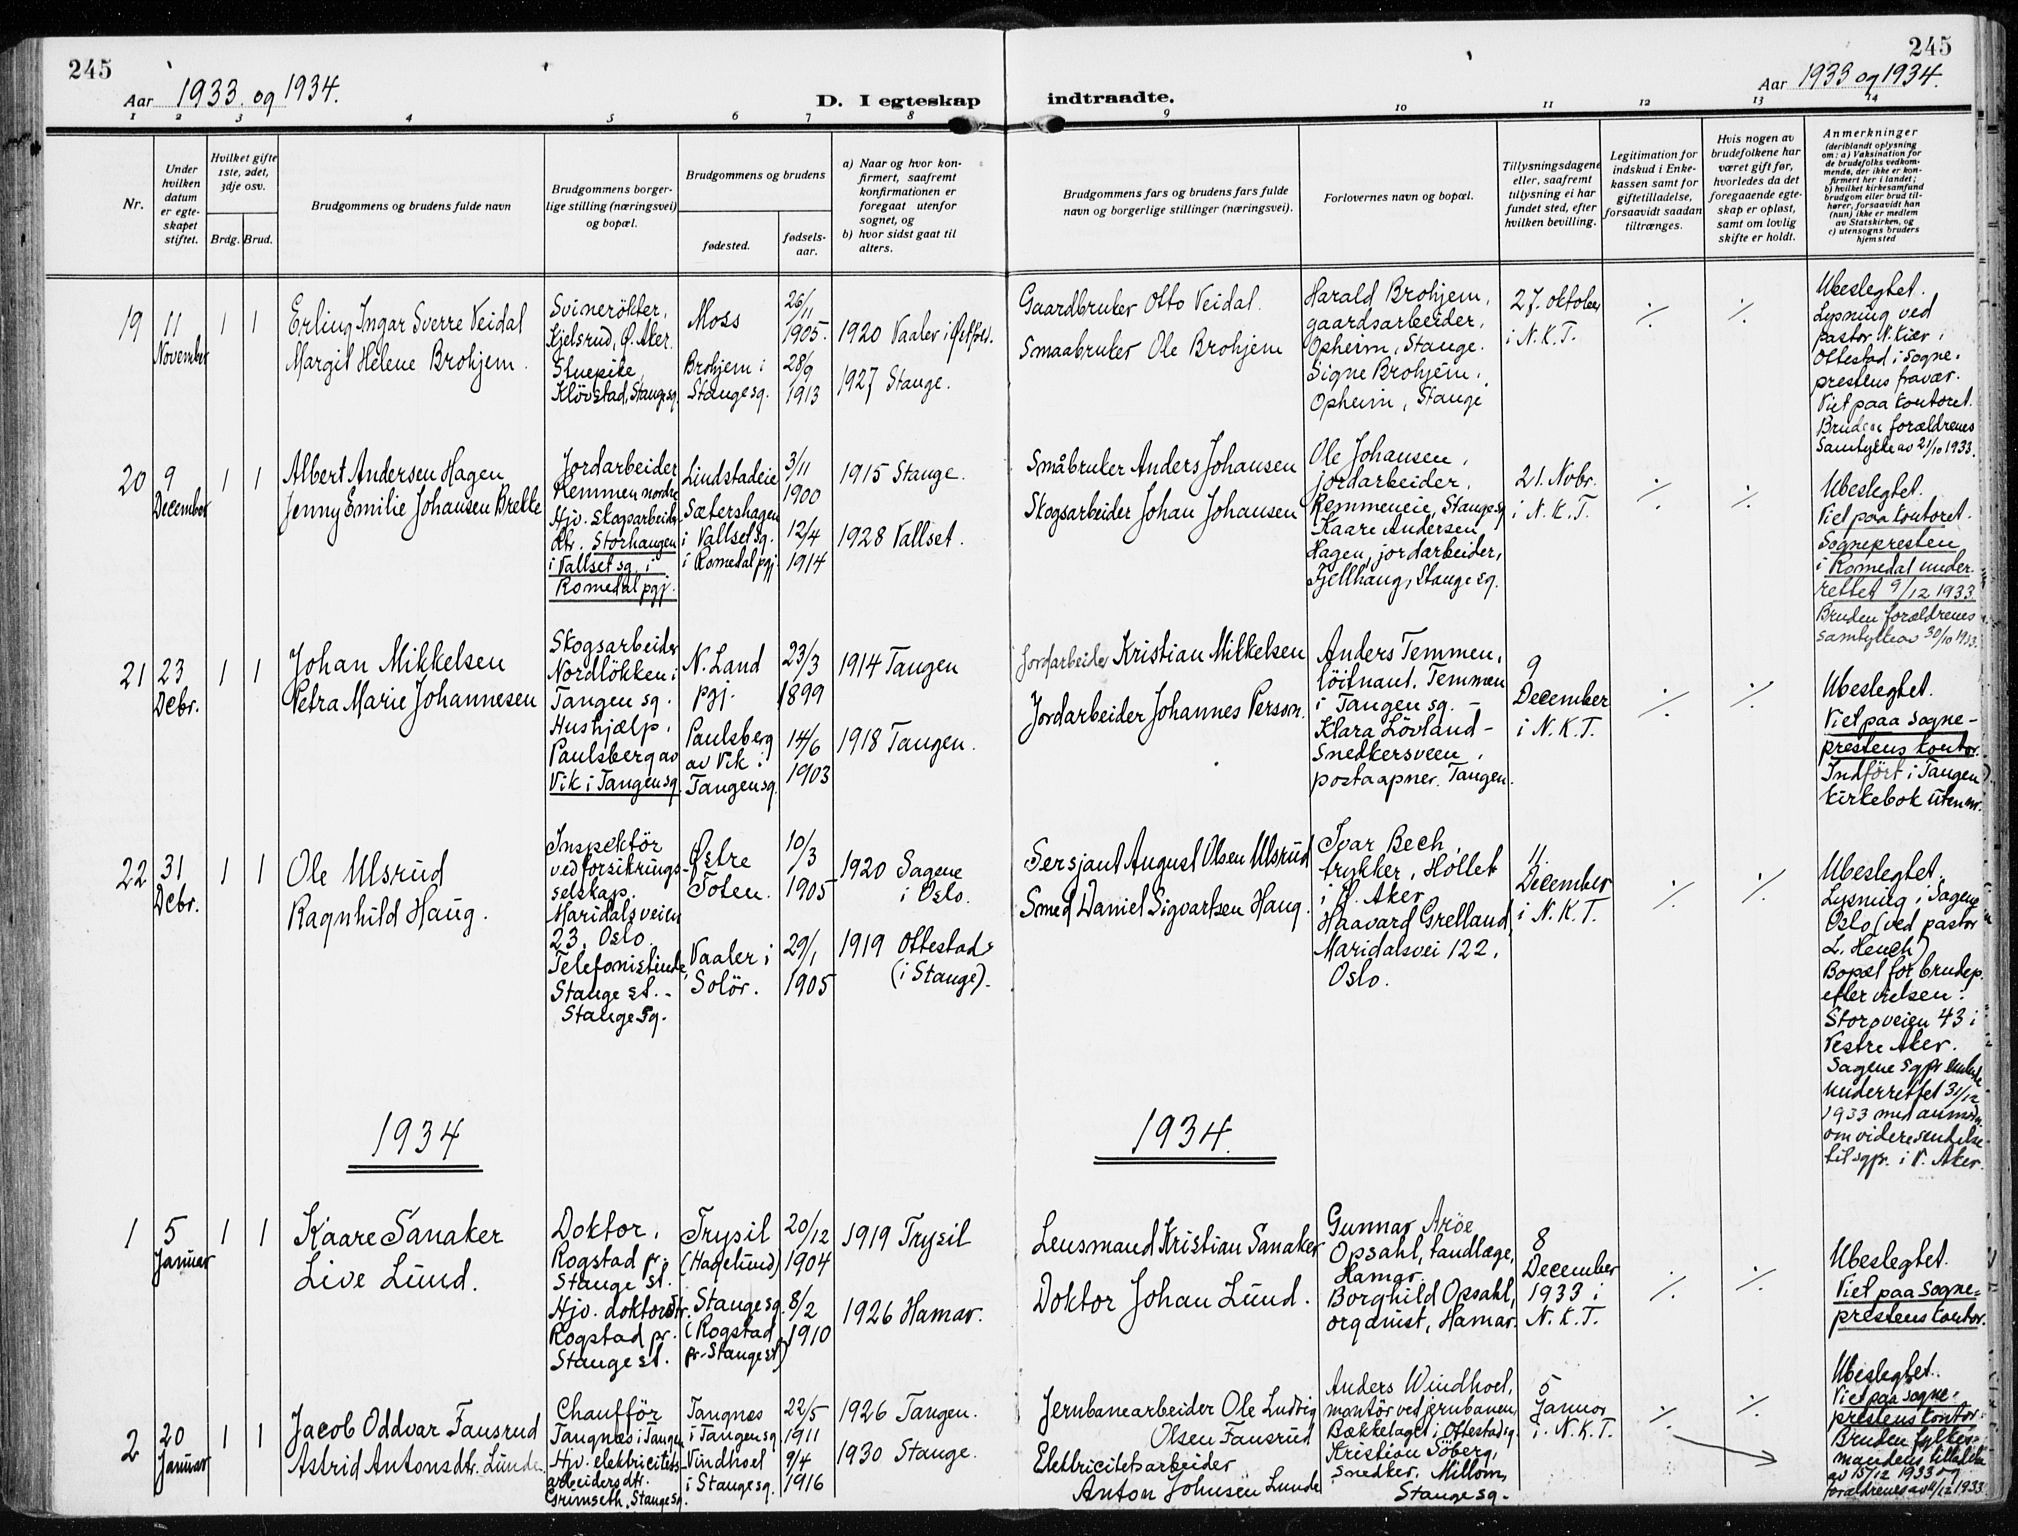 245
245
Aar 1933 og 1934.
D. I egteskap indtraadte.
Aar 1933 og 1934.
1 2 3 4 5 6 7 8 9 10 11 12 13 14
Nr.
Under hvilken datum er egteskapet stiftet.
Hvilket gifte 1ste, 2det, 3dje osv.
Brdg. Brud.
Brudgommens og brudens fulde navn
Brudgommens borgerlige stilling (næringsvei) og bopæl.
Brudgommens og brudens
fødested.
fødselsaar.
a) Naar og hvor konfirmert, saafremt konfirmationen er foregaat utenfor sognet, og
b) hvor sidst gaat til alters.
Brudgommens fars og brudens fars fulde navn og borgerlige stillinger (næringsvei).
Forlovernes navn og bopæl.
Tillysningsdagene eller, saafremt tillysning ei har fundet sted, efter hvilken bevilling.
Legitimation for indskud i Enkekassen samt for giftetilladelse, forsaavidt saadan tiltrænges.
Hvis nogen av brudefolkene har været gift før, hvorledes da det foregaaende egteskap er opløst, samt om lovlig skifte er holdt.
Anmerkninger (deriblandt oplysning om: a) Vaksination for de brudefolks vedkommende, der ikke er konfirmert her i landet; b) hvilket kirkesamfund brudgom eller brud tilhører, forsaavidt han (hun) ikke er medlem av Statskirken, og c) utensogns bruders hjemsted
19
11 November
1 1
Erling Ingar Sverre Veidal
Margit Helene Brohjem.
Svinerökter,
Kjelsrud, Ø. Aker.
Stuepike,
Klövstad, Stangesg.
Moss
Brohjem i
Stangesg.
26/11
1905.
28/9
1913
1920 Vaaler i Østfold.
1927 Stange.
Gaardbruker Otto Veidal.
Smaabruker Ole Brohjem
Harald Brohjem,
gaardsarbeider,
Opheim, Stange.
Signe Brohjem,
Opheim, Stange
27. oktober
i N.K.T.
./.
./.
Ubeslegtet.
Lysning ved
pastor N. Kiær i
Ottestad i sogneprestens fravær.
Viet paa kontoret.
Bruden forældrenes
Samtykke av 21/10 1933.
20
9 December
1 1
Albert Andersen Hagen
Jenny Emilie Johansen Brekke
Jordarbeider
Remmen nordre
Hjv. skogsarbeider
dtr. Storhaugen
i Vallset sg. i
Romedal pgj.
Lindstadeie
Sætershagen
i Vallset sg.
i Romedal pgj.
3/11
1900
12/4
1914
1915 Stange.
1928 Vallset.
Småbruker Anders Johansen
Skogsarbeider Johan Johansen
Ole Johansen,
jordarbeider,
Remmeneie, Stangesg
Kaare Andersen
Hagen, jordarbeider,
Fjellhaug, Stange sg.
21. Nobr.
i N.K.T.
./.
./.
Ubeslegtet.
Viet paa kontoret.
Sognepresten
i Romedal underrettet 9/12 1933.
Bruden forældrenes
samtykke av 30/10 1933.
21
23 Debr.
1 1
Johan Mikkelsen
Petra Marie Johannesen
Skogsarbeider
Nordlökken i
Tangen sg.
Hushjælp,
Paulsberg av
Vik i Tangen sg.
N. Land
pgj.
Paulsberg
av Vik i
Tangen sg.
23/3
1899
14/6
1903
1914 Tangen
1918 Tangen.
Jordarbeider Kristian Mikkelsen
Jordarbeider Johannes Persson.
Anders Temmen,
löitnant. Temmen
i Tangen sg. -
Klara Lövland -
Snedkersveen,
postaapner. Tangen.
9
December
i N.K.T.
./.
./.
Ubeslegtet.
Viet paa sogneprestens kontor.
Indfört i Tangen
kirkebok uten nr.
22
31 Debr.
1 1
Ole Ulsrud
Ragnhild Haug.
Inspektör
ved forsikringsselskap.
Maridalsveien
23, Oslo
Telefonistinde,
Stange st. -
Stange sg.
Østre
Toten.
Vaaler i
Solör.
10/3
1905
29/1
1905
1920 Sagene
i Oslo.
1919 Ottestad
(i Stange).
Sersjant August Olsen Ulsrud
Smed Daniel Sigvartsen Haug.
Ivar Bech,
trykker, Hollet
i Ø. Aker
Haavard Grelland,
Maridalsvei 122,
Oslo.
11.
December
i N.K.T.
./.
./.
Ubeslegtet.
Lysning i Sagene
Oslo (ved pastor
L. Heuch)
Bopæl for brudep.
efter vielsen:
Storoveien 43 i
Vestre Aker.
Sagene sgpr
underrettet 31/12
1933 med anmodn.
om videresendelse
til sgpr. i V. Aker.
1934
1934.
1
5 Januar
1 1
Kaare Sanaker
Live Lund.
Doktor,
Rogstad pr.
Stange st.
Hjv. doktordtr.
Rogstad pr.
Stange st.
Trysil
(Hagelund)
Stange sg.
(Rogstad
pr. Stange st)
20/12
1904
8/2
1910
1919 Trysil
1926 Hamar.
Lensmand Kristian Sanaker
Doktor Johan Lund.
Gunnar Aröe
Opsahl, tandlæge,
Hamar.
Borghild Opsahl,
organist, Hamar.
8
December
1933 i
N.K.T.
./.
./.
Ubeslegtet.
Viet paa Sogneprestens kontor.
2
20 Januar
1 1
Jacob Oddvar Fausrud
Astrid Antonsdtr. Lunde.
Chaufför
Tangnæs i Tangen
Hjv. elektricitetsarbeidersdtr.
Grimseth, Stange sg.
Tangnes
i Tangen sg.
Vindhoel
i Stange sg.
22/5
1911
9/4
1916
1926 Tangen.
1930 Stange.
Jernbanearbeider Ole Ludvig
Olsen Fausrud
Elektricitetsarbeider
Anton Johnsen Lunde
Anders Windhoel,
montör ved jernbanen,
Bækkelaget i Ottestad sg.
Kristian Söberg,
snedker. Millom,
Stange sg.
5
Januar
i N.K.T.
./.
./.
Ubeslegtet.
Viet paa sogneprestens kontor.
Bruden fylkesmandens tilladelse
av 15/12 1933 og
forældrenes av 11/12 1933